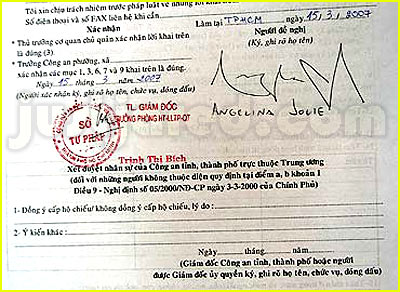 Tôi xin chịu trách nhiệm trước pháp luật về những lời khai
Số điện thoại và số FAX liên hệ khi cần
Làm tại TPHCM ngày 15/3/2007
Xác nhận
Người đề nghị
* Thủ trưởng cơ quan chủ quản xác nhận lời khai trên
(Ký, ghi rõ họ tên)
là đúng (3).
* Trưởng Công an phường, xã
xác nhận các mục 1, 3, 6, 7 và 9 khai trên là đúng.
Ngày 15 tháng 3 năm 2007
(Người xác nhận ký, ghi rõ họ tên, chức vụ, đóng dấu)
ANGELINA JOLIE
TL. GIÁM ĐỐC
TRƯỞNG PHÒNG HT-LLTP-QT
SỞ
TƯ PHÁP
Trịnh Thị Bích
Xét duyệt nhân sự của Công an tỉnh, thành phố trực thuộc Trung ương
(đối với những người không thuộc diện quy định tại điểm a, b khoản 1
Điều 9 - Nghị định số 05/2000/NĐ-CP ngày 3-3-2000 của Chính Phủ)
1- Đồng ý cấp hộ chiếu/ không đồng ý cấp hộ chiếu, lý do :
2- Ý kiến khác :
Ngày tháng năm
(Giám đốc Công an tỉnh, thành phố hoặc người
được Giám đốc ủy quyền ký, ghi rõ họ tên, chức vụ, đóng dấu)